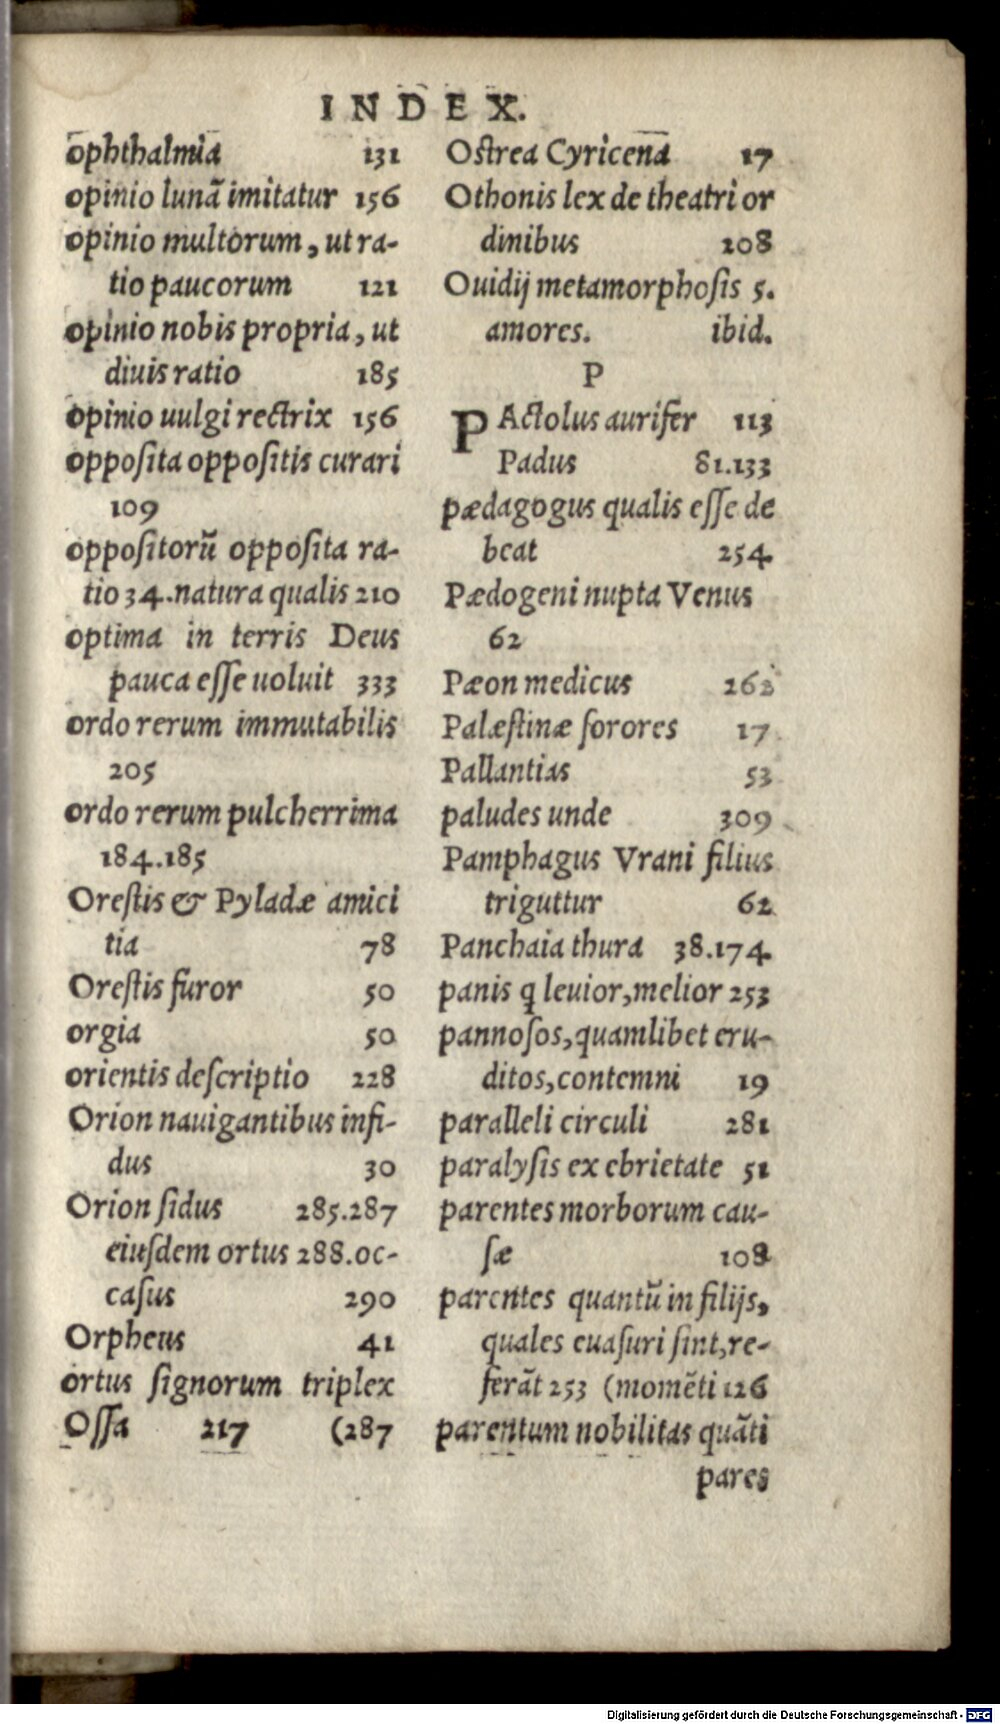 INDEX.
ophthalmia 131
opinio lunā imitatur 156
opinio multorum, ut ra-
tio paucorum 121
opinio nobis propria, ut
diuis ratio 185
opinio uulgi rectrix 156
opposita oppositis curari
109
oppositorū opposita ra-
tio 34. natura qualis 210
optima in terris Deus
pauca esse uoluit 333
ordo rerum immutabilis
205
ordo rerum pulcherrima
184.185
Orestis & Pyladæ amici
tia 78
Orestis furor 50
orgia 50
orientis descriptio 228
Orion nauigantibus infi-
dus 30
Orion sidus 285.287
eiusdem ortus 288. oc-
casus 290
Orpheus 41
ortus signorum triplex
Ossa 217 (287
Ostrea Cyricena 17
Othonis lex de theatri or
dinibus 208
Ouidij metamorphosis 5.
amores. ibid.
P
PActolus aurifer 113
Padus 81.133
pædagogus qualis esse de
beat 254
Pædogeni nupta Venus
62
Pæon medicus
Palæstinæ sorores 17
Pallantias 53
paludes unde 309
Pamphagus Vrani filius
triguttur 62
Panchaia thura 38.174
panis q leuior, melior 253
pannosos, quamlibet eru-
ditos, contemni 19
paralleli circuli 281
paralysis ex ebrietate 51
parentes morborum cau-
sæ 108
parentes quantū in filijs,
quales euasuri sint, re-
ferāt 253 (momēti 126
parentum nobilitas quāti
pares
Digitalisierung gefördert durch die Deutsche Forschungsgemeinschaft - DFG